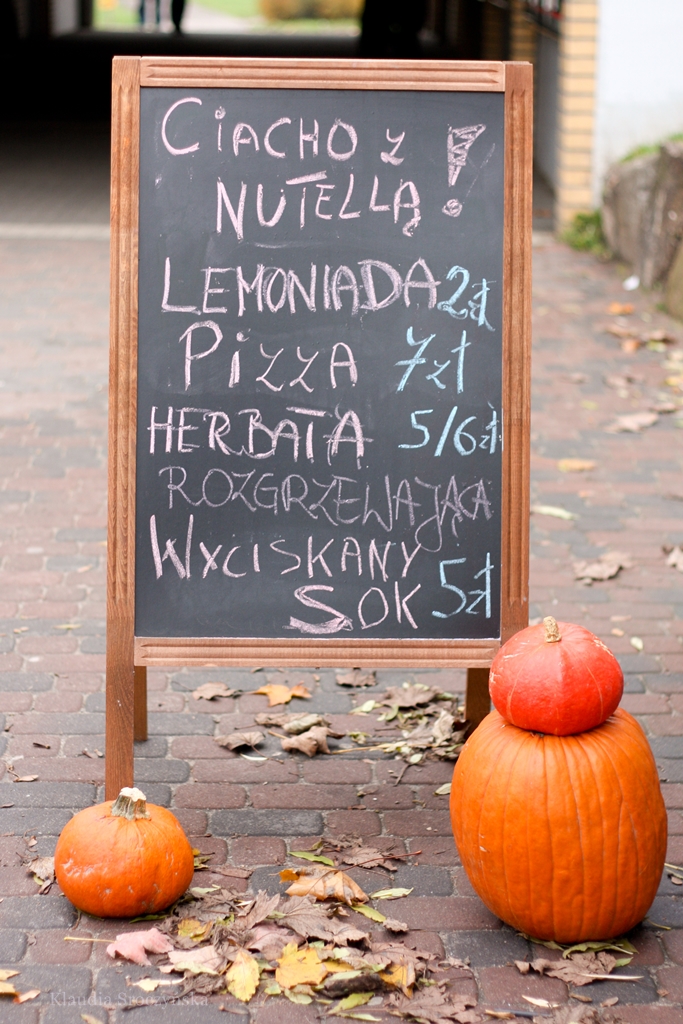 CIACHO Z !
NUTELLĄ
LEMONIADA 2zł
PIZZA 7zł
HERBATA 5/6zł
ROZGRZEWAJĄCA
WYCISKANY
SOK 5zł